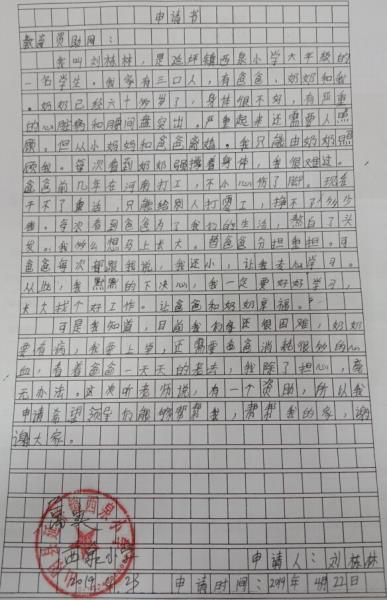 申请书
教育资助网：
我叫刘栋林，是延坪镇西泉小学六年级的
一名学生。我家有三口人，有爸爸、奶奶和我
。奶奶已经六十多岁了，身体很不好，有严重
的心脏病和腰间盘突出。严重起来还需要人照
顾。但从小妈妈和爸爸离婚。我只能由奶奶照
顾我。每次看到奶奶强撑着身体，我很难过。
爸爸前几年在河南打工，不小心伤了脚。现在
干不了重活，只能给别人打零工，挣不了多少
钱。每次看到爸爸为了我们的生活，熬白了头
发。我多么想马上长大。替爸爸分担重担。可
爸爸每次都跟我说，我还小，让我专心学习。
从此，我默默的下决心，我一定要好好学习，
长大找个好工作。让爸爸和奶奶幸福。
可是我知道，目前我们家还很困难，奶奶
要看病，我要上学，还需要爸爸消耗很多的心
血，看着爸爸一天天的老去，我除了担心，毫
无办法。这次听老师说，有一个资助，所以我
申请希望领导们能够帮帮我，帮帮我的家，谢
谢大家。
属实
西泉小学
2019.4.23
申请人：刘栋林
申请时间：2019年4月22日